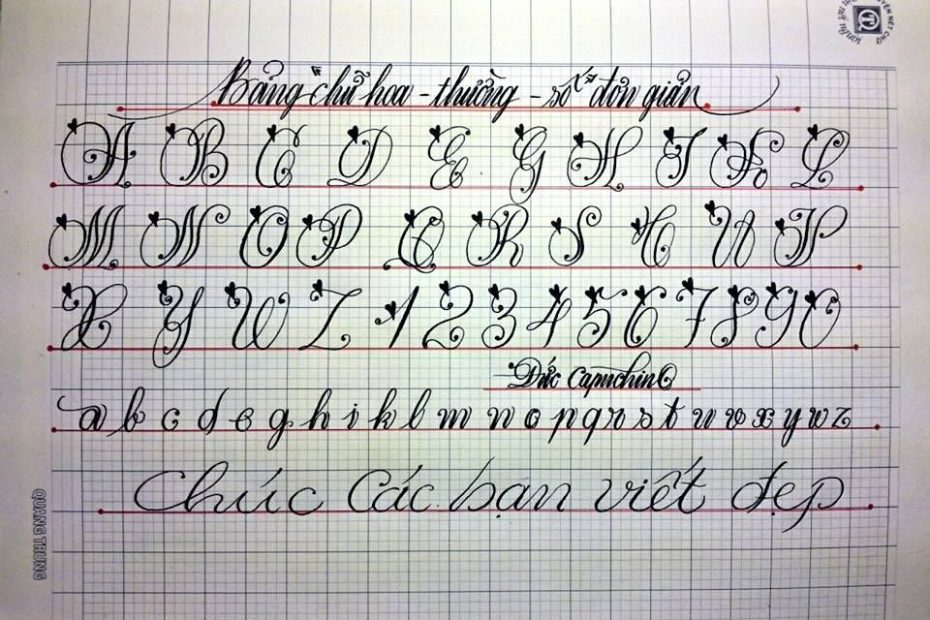 Bảng "chữ hoa - thường - số" đơn giản
A B C D E G H I K L
M N O P Q R S T U V
X Y W Z 1 2 3 4 5 6 7 8 9 0
Đức Capuchino
a b c d e g h i k l m n o p q r s t u v x y w z
Chúc các bạn viết đẹp
QUANG TRUNG